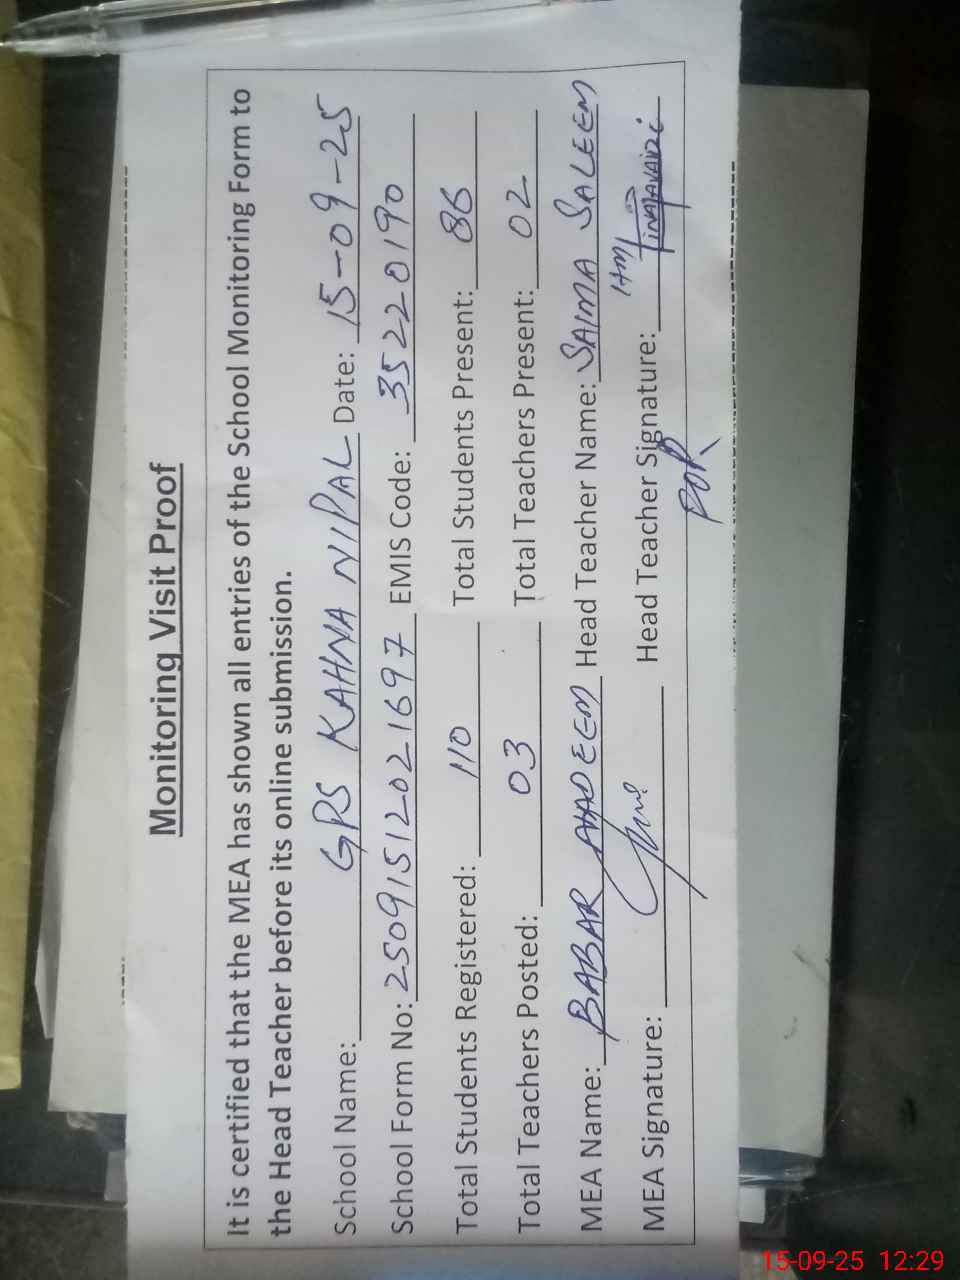 Monitoring Visit Proof
It is certified that the MEA has shown all entries of the School Monitoring Form to
the Head Teacher before its online submission.
School Name: GPS KAHNA NIPAL Date: 15-09-25
School Form No: 25091512021697 EMIS Code: 35220190
Total Students Registered: 110 Total Students Present: 86
Total Teachers Posted: 03 Total Teachers Present: 02
MEA Name: BABAR Head Teacher Name: SAIMA SALEEM
MEA Signature: Head Teacher Signature:
15-09-25 12:29